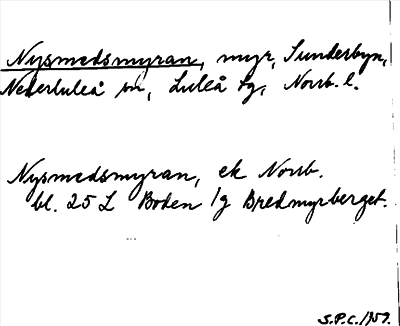 Nysmedsmyran, myr, Sunderbyn,
Nederluleå sn, Luleå tg, Norrb. l.
Nysmedsmyran, ek Norrb.
bl. 25 L Boden 1/g Bredmyrberget.
S.P.C. 1959.